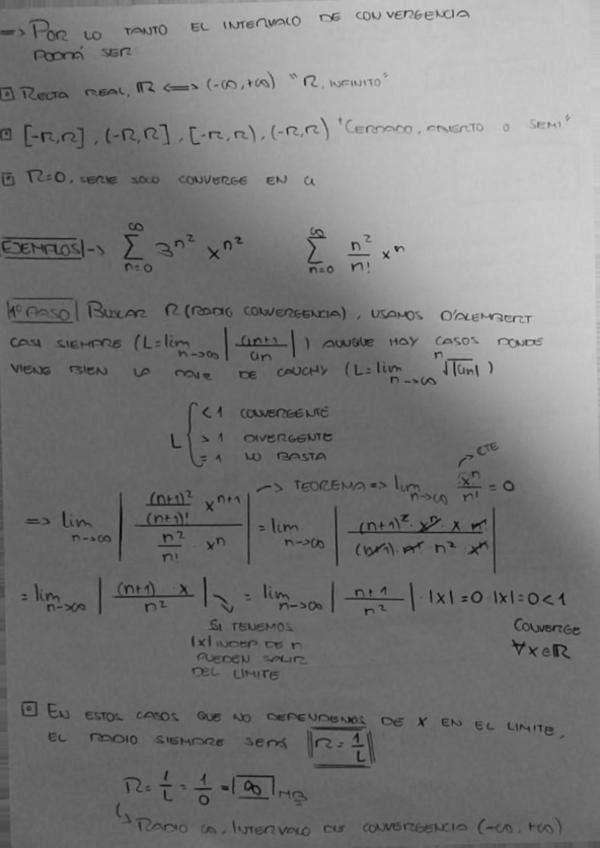 => POR LO TANTO EL INTERVALO DE CONVERGENCIA
PODRÁ SER
▣ RECTA REAL, ℝ <=> (-∞,+∞) "R, INFINITO"
▣ [-R,R], (-R,R], [-R,R), (-R,R) "CERRADO, ABIERTO O SEMI"
▣ R=0, SERIE SOLO CONVERGE EN a
EJEMPLOS |-> ∑_{n=0}^{∞} 3^{n²} x^{n²}     ∑_{n=0}^{∞} n²/n! x^n
1º PASO | BUSCAR R (RADIO CONVERGENCIA), USAMOS D'ALEMBERT
CASI SIEMPRE (L=lim_{n->∞} |an+1/an|) AUNQUE HAY CASOS DONDE
VIENE BIEN LA DE CAUCHY (L=lim_{n->∞} ⁿ√|an|)
L { <1 CONVERGENTE
>1 DIVERGENTE
=1 NO BASTA
-> TEOREMA => lim_{n->∞} x^n/n! = 0 -> CTE
=> lim_{n->∞} | ((n+1)²/(n+1)! x^{n+1}) / (n²/n! · x^n) | = lim_{n->∞} | ((n+1)² · x^n · x · n!) / ((n+1) · n! · n² · x^n) |
= lim_{n->∞} | (n+1) · x / n² | = lim_{n->∞} | n+1 / n² | · |x| = 0 · |x| = 0 < 1
SI TENEMOS
|x| INDEP DE n
PUEDEN SALIR
DEL LIMITE
CONVERGE
∀x∈ℝ
▣ EN ESTOS CASOS QUE NO DEPENDEMOS DE X EN EL LIMITE,
EL RADIO SIEMPRE SERÁ ||R = 1/L||
R = 1/L = 1/0 = |∞|
↳ RADIO ∞, INTERVALO DE CONVERGENCIA (-∞, +∞)